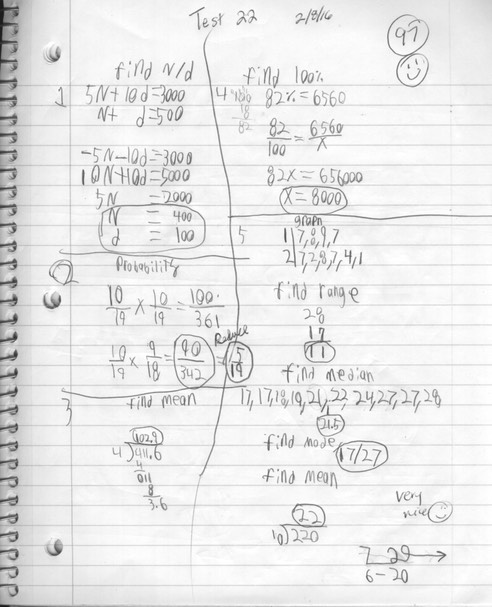 Test 22 2/8/16
97
find N/d
1 5N+10d=3000
N+ d=500
-5N-10d=3000
10N+10d=5000
5N =2000
N = 400
d = 100
2 Probability
10/19 × 10/19 = 100/361
10/19 × 9/18 = 90/342 = 5/19
Reduce
3 find mean
102.9
4)411.6
4
011
8
3.6
find 100%
4 82%=6560
18
82
82/100 = 6560/X
82X=656000
X=8000
5 graph
1|7,8,9,7
2|7,2,8,7,4,1
find range
28
17
11
find median
17,17,18,19,21,22,24,27,27,28
21.5
find mode 17/27
find mean
22
10)220
very
nice
7 29
6-20